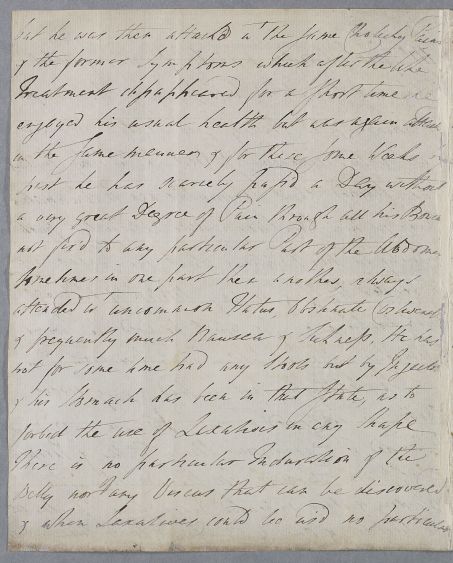 but he was then attack'd wt the same Cholicky Pains
& the former Symptoms which after the like
Treatment disappeared for a short time he
enjoyed his usual health but was again attack
in the same manner & for these some Weeks
past he has scarcely pass'd a Day without
a very great Degree of Pain through all his Bowe
not fix'd to any particular Part of the Abdomen
Sometimes in one part then another, always
attended wt uncommon Flatus, Obstinate Costiveness
& frequently much Nausea & Sickness. He has
not for some time had any Stools but by Injectio
& his Stomach has been in that State, as to
forbid the use of Laxatives in any Shape
There is no particular Induration of the
Belly nor any Viscus that can be discovered
& when Laxatives could be us'd no particular